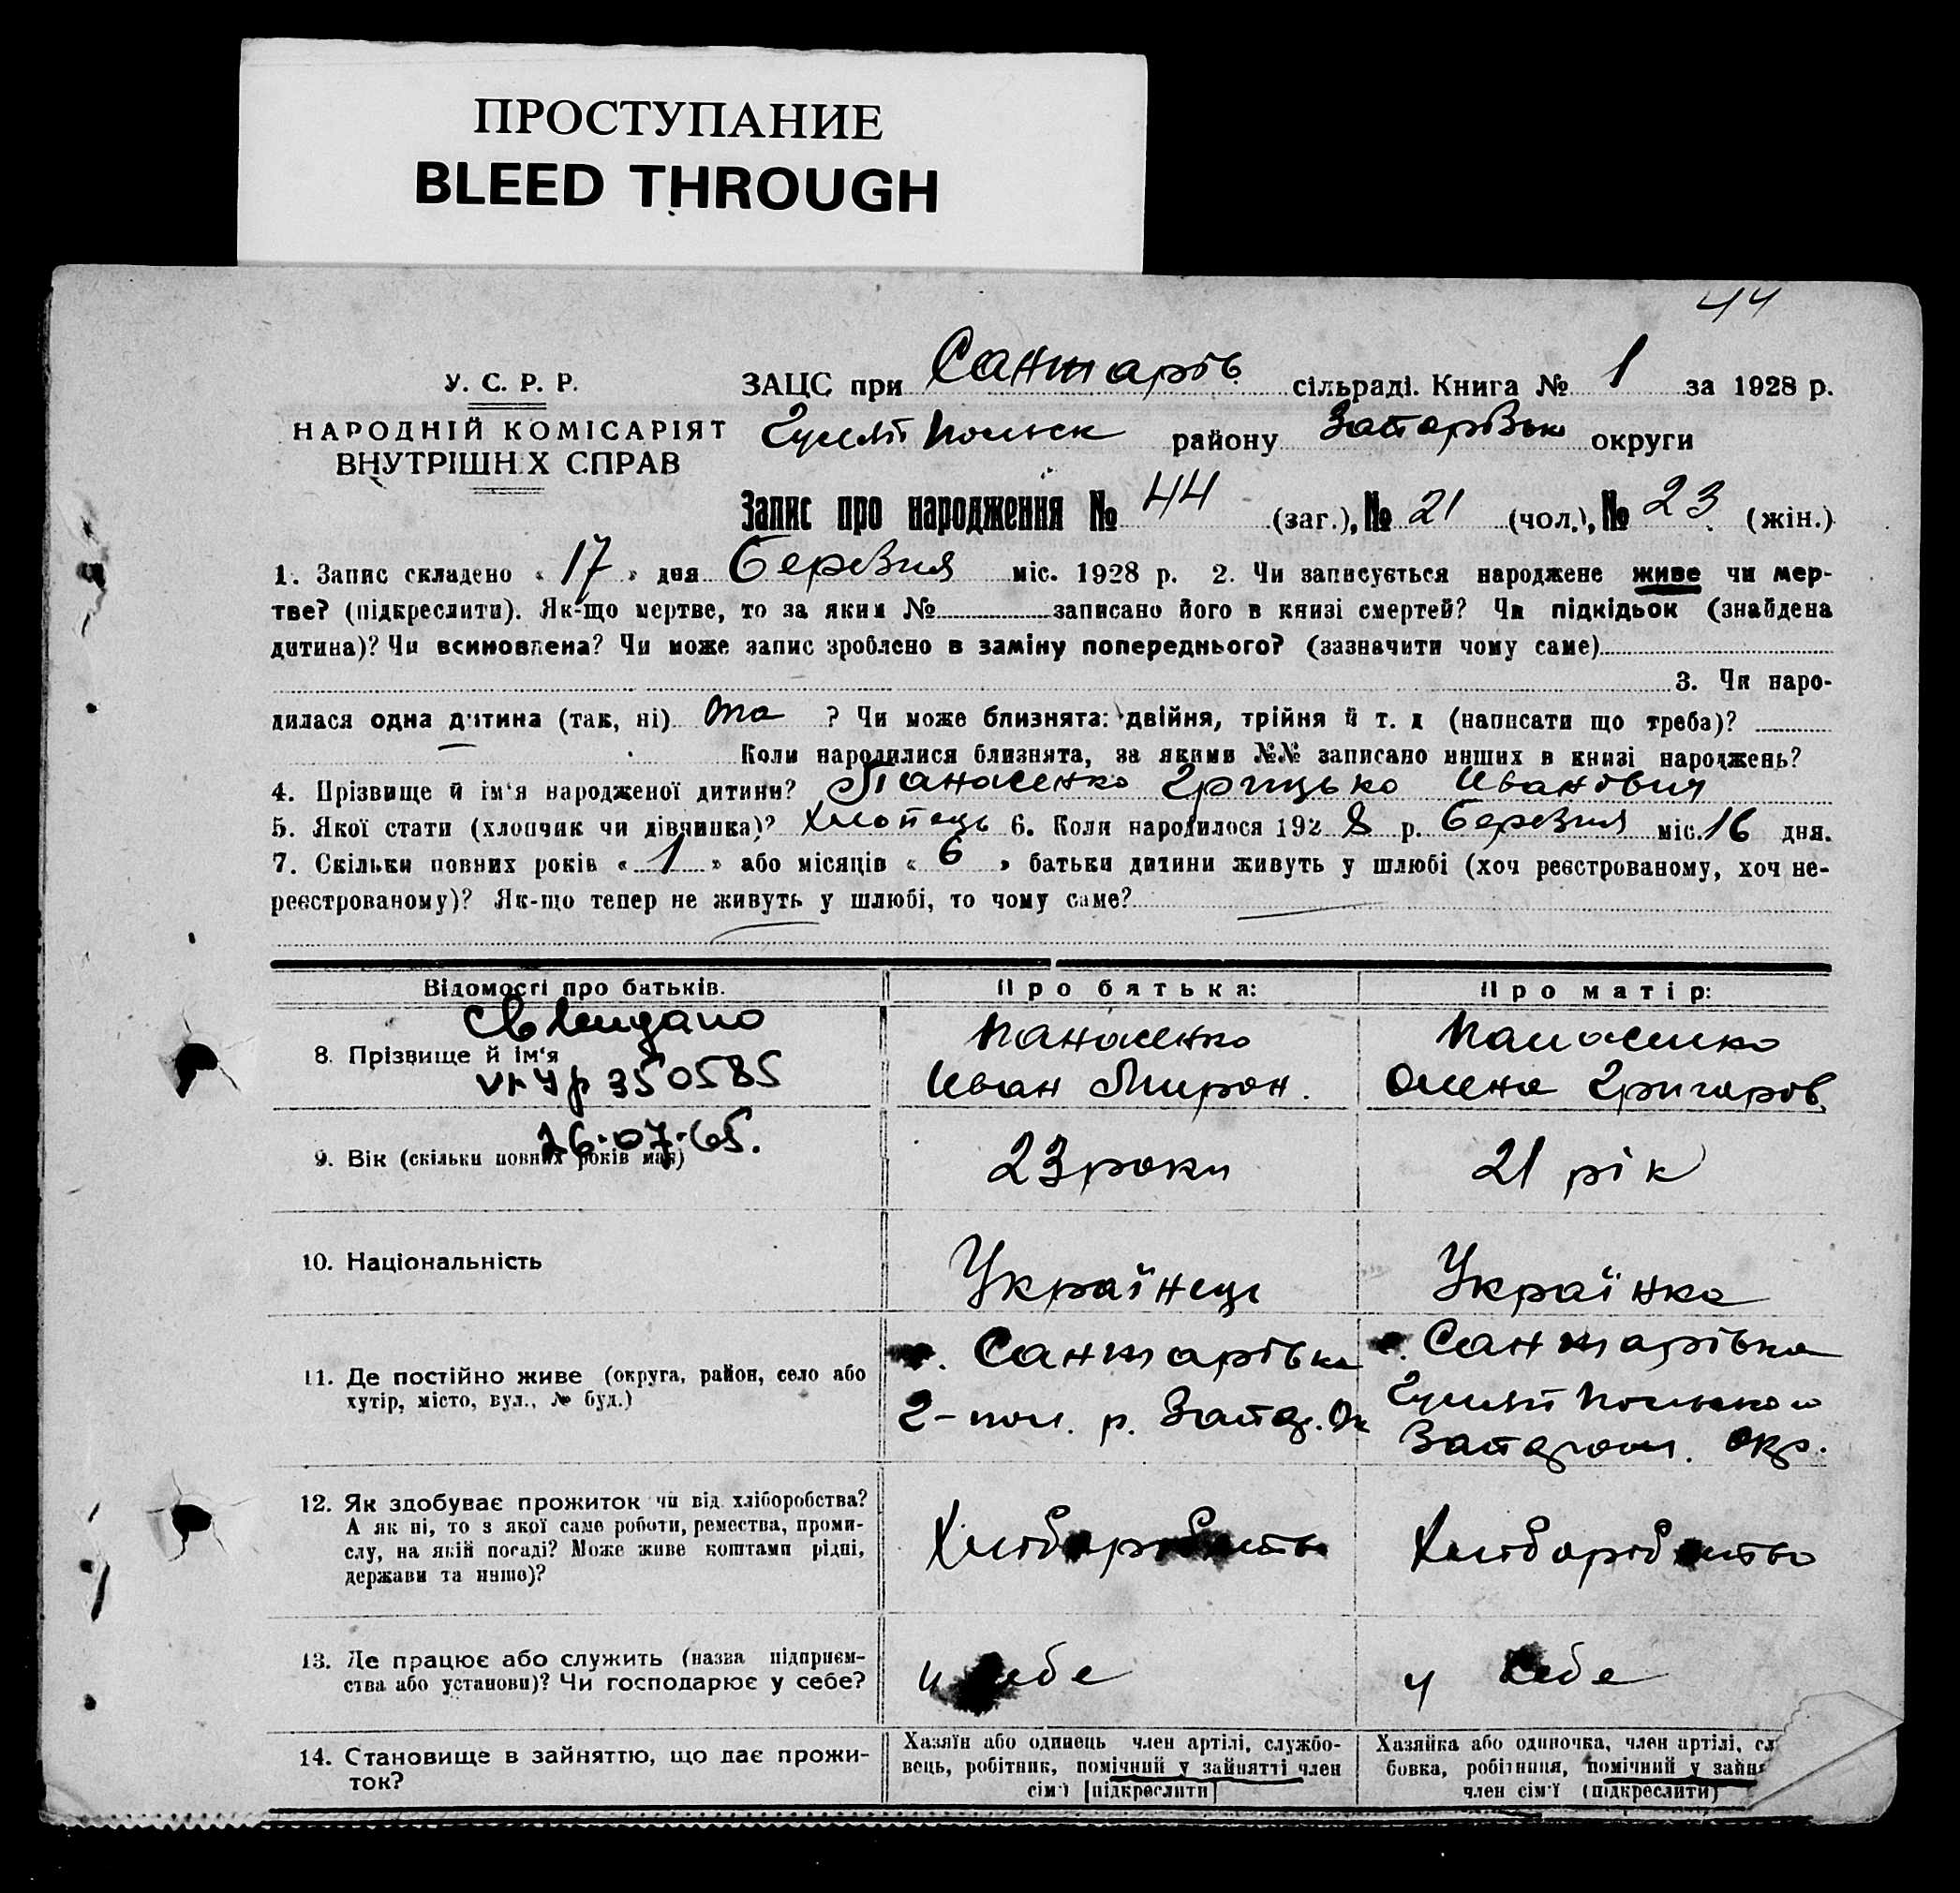 ПРОСТУПАНИЕ
BLEED THROUGH
44
У. С. Р. Р.
НАРОДНІЙ КОМІСАРІЯТ
ВНУТРІШНІХ СПРАВ
ЗАЦС при Санжарів. сільраді. Книга № 1 за 1928 р.
Гуляй Польськ району округи
Запис про народження № 44 (заг.), № 21 (чол.), № 23 (жін.)
1. Запис складено « 17 » дня Березня міс. 1928 р. 2. Чи записується народжене живе чи мер-
тве? (підкреслити). Як-що мертве, то за яким № записано його в книзі смертей? Чи підкідьок (знайдена
дитина)? Чи всиновлена? Чи може запис зроблено в заміну попереднього? (зазначити чому саме)
3. Чи наро-
дилася одна дитина (так, ні) та ? Чи може близнята: двійня, трійня й т. д (написати що треба)?
Коли народилися близнята, за якими №№ записано инших в книзі народжень?
4. Прізвище й ім'я народженої дитини? Панасенко Грицько Иванович
5. Якої стати (хлопчик чи дівчинка)? Хлопець 6. Коли народилося 1928 р. Березня міс. 16 дня.
7. Скільки повних років « 1 » або місяців « 6 » батьки дитини живуть у шлюбі (хоч реєстрованому, хоч не-
реєстрованому)? Як-що тепер не живуть у шлюбі, то чому саме?
Відомості про батьків.
Про батька:
Про матір:
8. Прізвище й ім'я
Св Видано
350585
26.07.65.
Панасенко
Иван Мирон.
Панасенко
Олена Григоров
9. Вік (скільки повних років має)
23 роки
21 рік
10. Національність
Українець
Українка
11. Де постійно живе (округа, район, село або
хутір, місто, вул., № буд.)
с. Санжарівка
Г-пол. р. Запор. Ок
с. Санжарівка
Гуляй Польського
Запорож. окр.
12. Як здобуває прожиток чи від хліборобства?
А як ні, то з якої саме роботи, ремества, проми-
слу, на якій посаді? Може живе коштами рідні,
держави та инше)?
Хліборобство
Хліборобство
13. Де працює або служить (назва підприєм-
ства або установи)? Чи господарює у себе?
у себе
у себе
14. Становище в зайняттю, що дає прожи-
ток?
Хазяїн або одинець член артілі, службо-
вець, робітник, помічний у зайнятті член
сім'ї [підкреслити]
Хазяйка або одиночка, член артілі, сл
бовка, робітниця, помічний у зайня
член сім'ї (підкреслити)